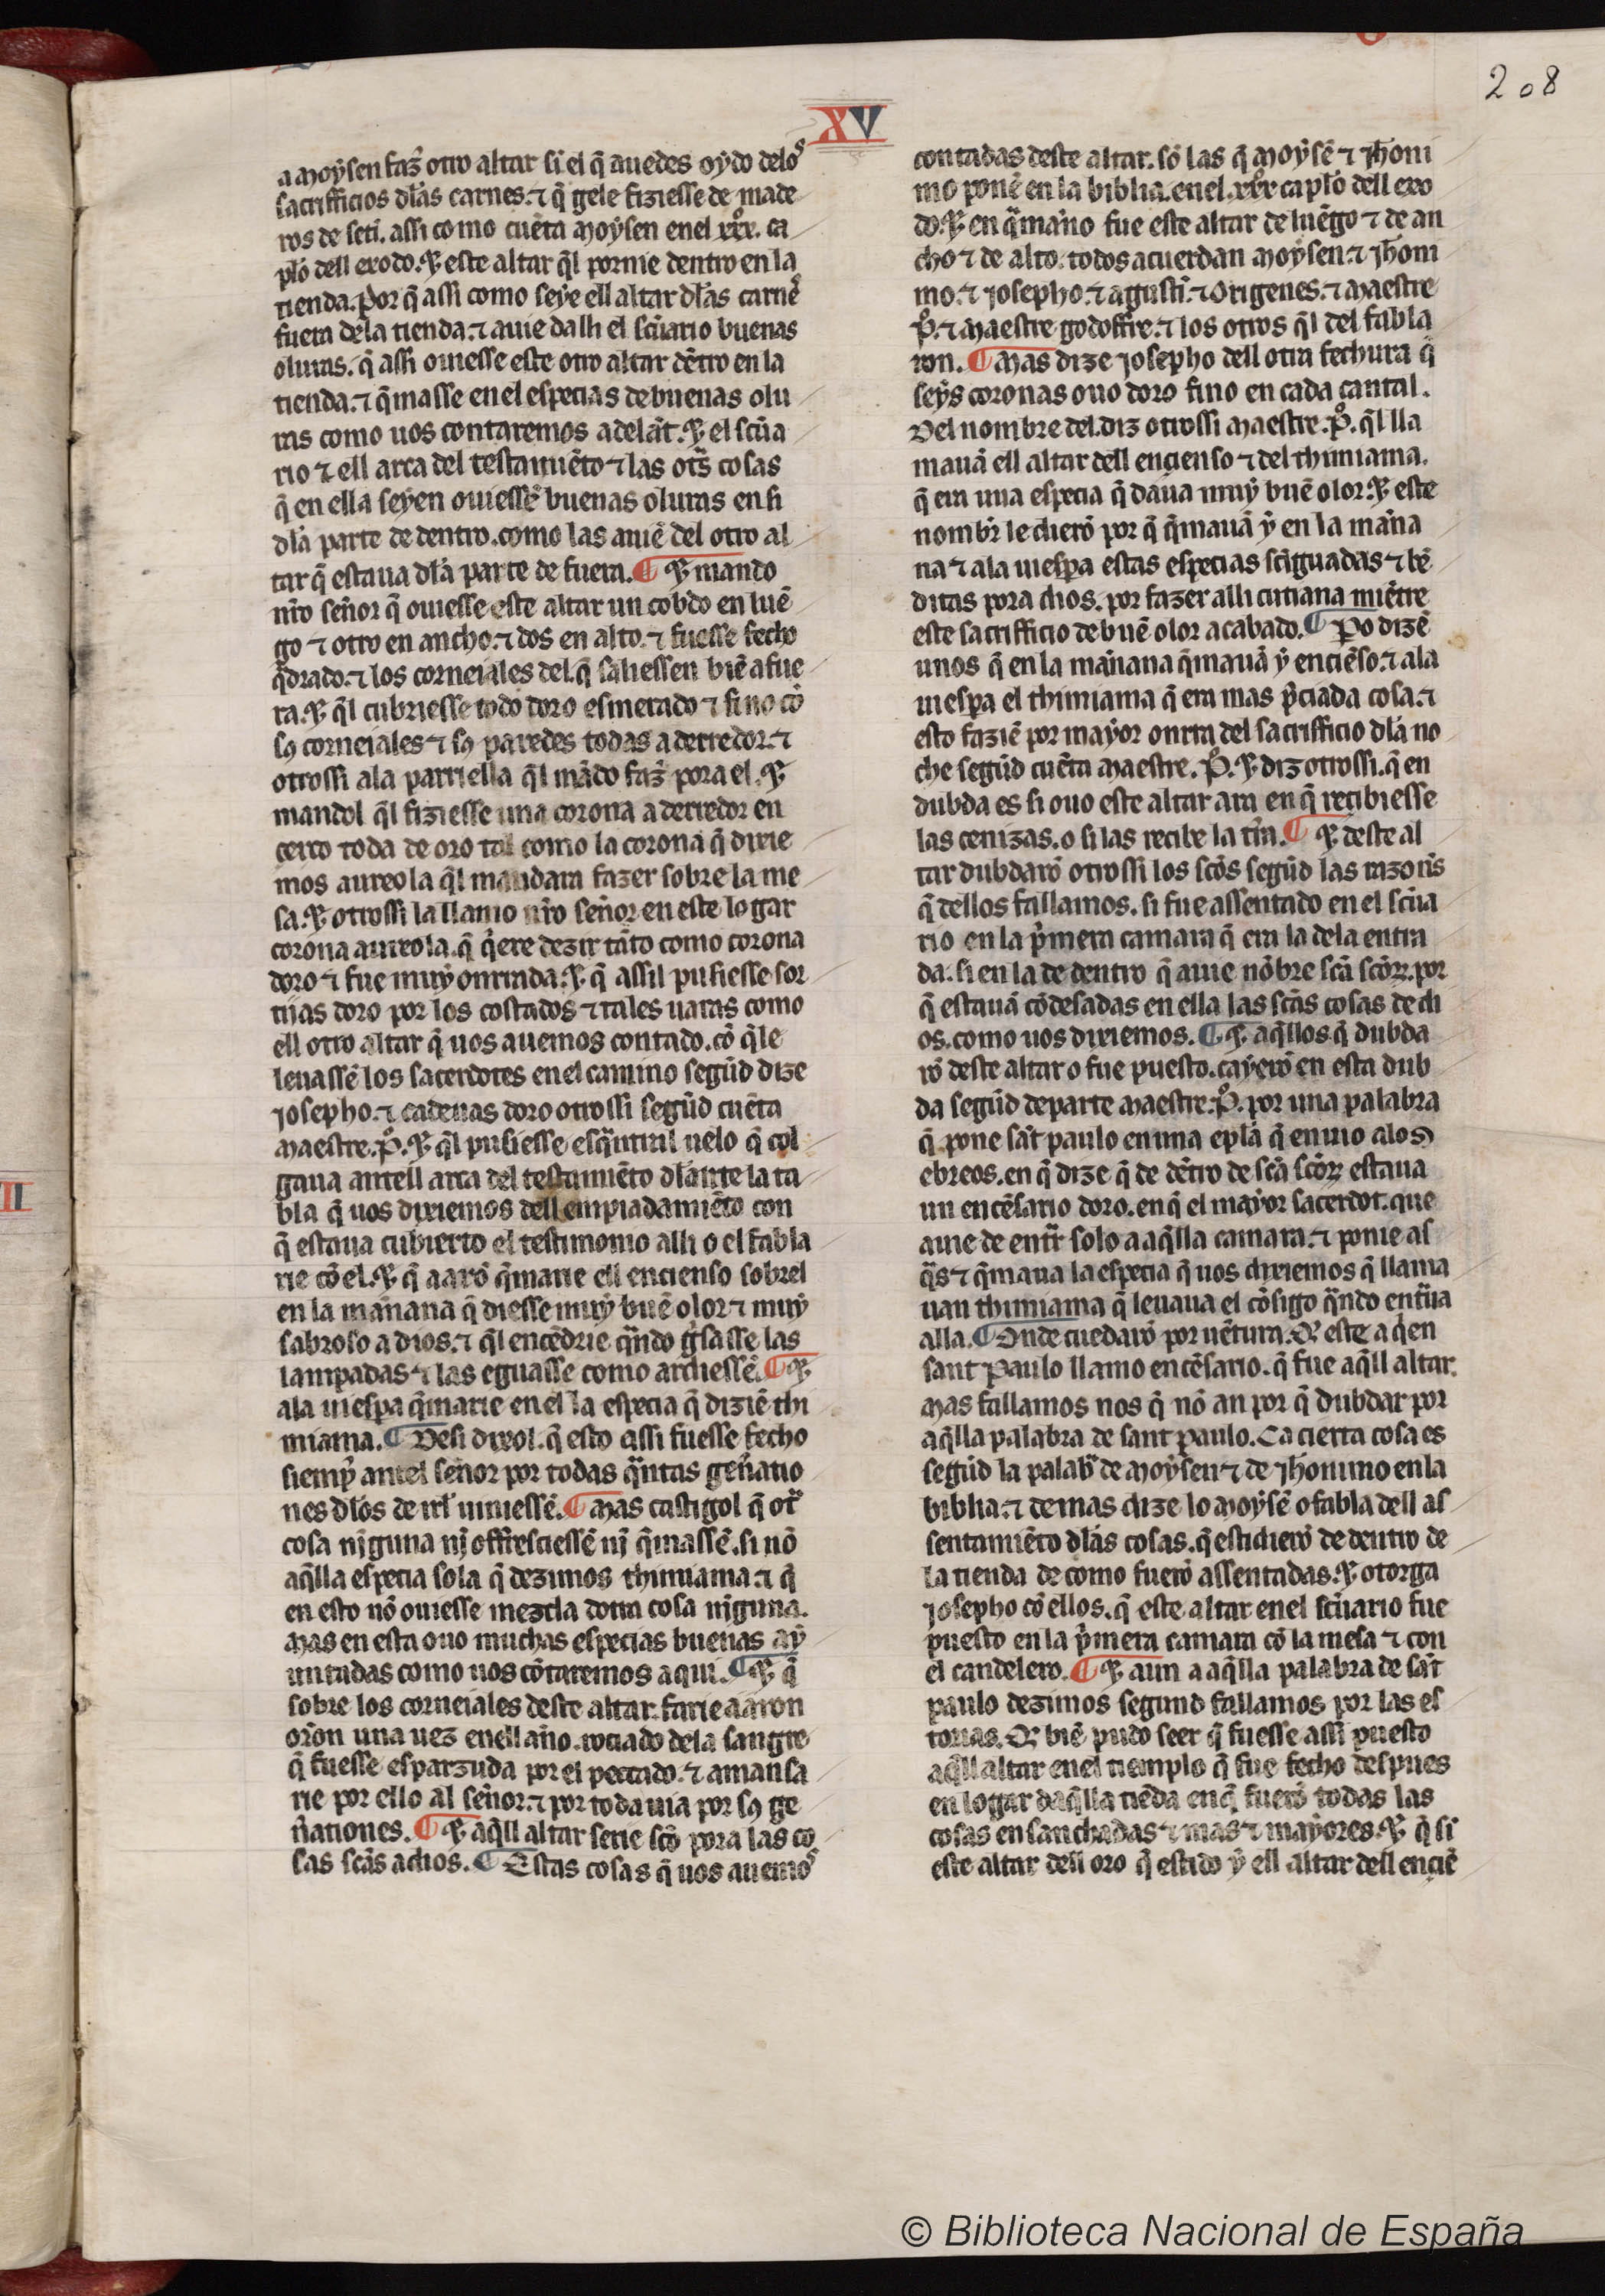 208
XV
a moẏsen faz̄ otro altar sī el q̄ auedes oẏdo delos
sacrifficios dl̄as carnes. ⁊ q̄ gele fiziesse de made
ros de seti. assi como cuēta moẏsen enel .xxxº. ca
pl̄o dell exodo. ⁊ este altar q̄l pornie dentro en la
tienda. por q̄ assi como seẏe ell altar dl̄as carnes
fuera dela tienda. ⁊ auie dalli el sc̄uario buenas
oluras. q̄ assi ouiesse este otro altar dētro en la
tienda. ⁊ q̄masse enel especias de buenas olu
ras como uos contaremos adelāt. ⁊ el sc̄ua
rio ⁊ ell arca del testamēto ⁊ las ot̄s cosas
q̄ en ella seẏen ouiessē buenas oluras en si
dl̄a parte de dentro. como las auiē del otro al
tar q̄ estaua dl̄a parte de fuera. ¶ ⁊ mando
nr̄o señor q̄ ouiesse este altar un cobdo en luē
go ⁊ otro en ancho. ⁊ dos en alto. ⁊ fuesse fecho
q̄drado. ⁊ los corneiales del. q̄ saliessen biē a fue
ra. ⁊ q̄l cubriesse todo doro esmerado ⁊ fino cō
sꝯ corneiales ⁊ sꝯ paredes todas a derredor. ⁊
otrossi ala parriella q̄l mādo faz̄ pora el. ⁊
mandol q̄l fiziesse una corona a derredor en
cerco toda de oro tal como la corona q̄ dixie
mos aureola q̄l mandara fazer sobre la me
sa. ⁊ otrossi la llamo nr̄o señor en este logar
corona aureola. q̄ q̄ere dezir tāto como corona
doro ⁊ fue muẏ onrrada. ⁊ q̄ assil pusiesse sor
tijas doro por los costados ⁊ tales uaras como
ell otro altar q̄ uos auemos contado. cō q̄le
leuassē los sacerdotes enel camino segūd dize
josepho. ⁊ cadenas doro otrossi segūd cuēta
maestre. Pº. ⁊ q̄l pusiesse esq̄ntral uelo q̄ col
gaua antell arca del testamēto dl̄ante la ta
bla q̄ uos dixiemos dell empiadamiēto con
q̄ estaua cubierto el testimonio alli o el fabla
rie cō el. ⁊ q̄ aarō q̄marie ell encienso sobrel
en la mañana q̄ diesse muẏ buē olor ⁊ muẏ
sabroso a dios. ⁊ q̄l encēdrie q̄ndo ḡsasse las
lampadas ⁊ las eguasse como ardiessē. ¶ ⁊
ala uiesp̄a q̄marie en el la especia q̄ diziē thi
miama. ¶ Desi dixol. q̄ esto assi fuesse fecho
siemp̄ antel señor por todas q̄ntas gen̄atio
nes dl̄os de irl̄ uiniessē. ¶ Mas castigol q̄ ot̄
cosa nj̄guna nj̄ offresciessē nj̄ q̄massē. si nō
aq̄lla especia sola q̄ dezimos thimiama. ⁊ q̄
en esto nō ouiesse mezcla dotra cosa nj̄guna.
Mas en esta ouo muchas especias buenas aẏ
untadas como uos cōtaremos aqui. ¶ ⁊ q̄
sobre los corneiales deste altar. farie aaron
orōn una uez enell año. rociado dela sangre
q̄ fuesse esparzuda por el peccado. ⁊ amansa
rie por ello al señor. ⁊ por toda uia por sꝯ ge
n̄ationes. ¶ ⁊ aq̄ll altar serie sc̄o pora las co
sas sc̄as a dios. ¶ Estas cosas q̄ uos auemos
contadas deste altar. sō las q̄ moẏsē ⁊ jh̄oni
mo ponē en la biblia. enel .xxxº capl̄o dell exo
do. ⁊ en q̄maño fue este altar de luēgo ⁊ de an
cho ⁊ de alto. todos acuerdan moẏsen. ⁊ jh̄oni
mo. ⁊ josepho. ⁊ agustī. ⁊ origenes. ⁊ maestre
Pº. ⁊ maestre godoffre. ⁊ los otros q̄l del fabla
ron. ¶ Mas dize josepho dell otra fechura q̄
seẏs coronas ouo doro fino en cada cantal.
Del nombre del. diz otrossi maestre. Pº. q̄l lla
mauā ell altar dell encienso ⁊ del thimiama.
q̄ era una especia q̄ daua muẏ buē olor. ⁊ este
nombr̄ le dierō por q̄ q̄mauā ẏ en la maña
na ⁊ ala uiesp̄a estas especias sc̄iguadas ⁊ bē
ditas pora dios. por fazer alli cutiana miētre
este sacrifficio de buē olor acabado. ¶ P̄o dizē
unos q̄ en la mañana q̄mauā ẏ enciēso. ⁊ ala
uiesp̄a el thimiama q̄ era mas p̄ciada cosa. ⁊
esto faziē por maẏor onrra del sacrifficio dl̄a no
che segūd cuēta maestre. Pº. ⁊ diz otrossi. q̄ en
dubda es si ouo este altar ara en q̄ recibiesse
las cenizas. o si las recibe la tr̄ra. ¶ ⁊ deste al
tar dubdarō otrossi los sc̄os segūd las razon̄s
q̄ dellos fallamos. si fue assentado en el sc̄ua
rio en la p̄mera camara q̄ era la dela entra
da. si en la de dentro q̄ auie nōbre sc̄a sc̄orꝝ. por
q̄ estauā cōdesadas en ella las sc̄as cosas de di
os. como uos dixiemos. ¶ ⁊ aq̄llos. q̄ dubda
rō deste altar o fue puesto. caẏerō en esta dub
da segūd departe maestre. Pº. por una palabra
q̄ pone sāt paulo en una epl̄a q̄ enuio alos
ebreos. en q̄ dize q̄ de dētro de sc̄a sc̄orꝝ estaua
un encēsario doro. en q̄ el maẏor sacerdot. que
auie de entr̄ solo a aq̄lla camara. ⁊ ponie as
q̄s ⁊ q̄maua la especia q̄ uos dixiemos q̄ llama
uan thimiama q̄ leuaua el cōsigo q̄ndo entr̄ua
alla. ¶ Onde cuedarō por uētura. Q̄ este a qen
sant Paulo llamo encēsario. q̄ fue aq̄ll altar.
Mas fallamos nos q̄ nō an por q̄ dubdar por
aq̄lla palabra de sant paulo. Ca cierta cosa es
segūd la palabr̄ de moẏsen ⁊ de jh̄onimo en la
biblia. ⁊ demas dize lo moẏsē o fabla dell as
sentamiēto dl̄as cosas. q̄ estidierō de dentro de
la tienda de como fuerō assentadas. ⁊ otorga
josepho cō ellos. q̄ este altar enel sc̄uario fue
puesto en la p̄mera camara cō la mesa ⁊ con
el candelero. ¶ ⁊ aun a aq̄lla palabra de sāt
paulo dezimos segund fallamos por las es
torias. Q̄ biē pudo seer q̄ fuesse assi puesto
aq̄ll altar enel tiemplo q̄ fue fecho despues
en logar daq̄lla tiēda en q̄ fuerō todas las
cosas ensanchadas ⁊ mas ⁊ maẏores. ⁊ q̄ si
este altar dell oro q̄ estido ẏ ell altar dell enciē
II
© Biblioteca Nacional de España